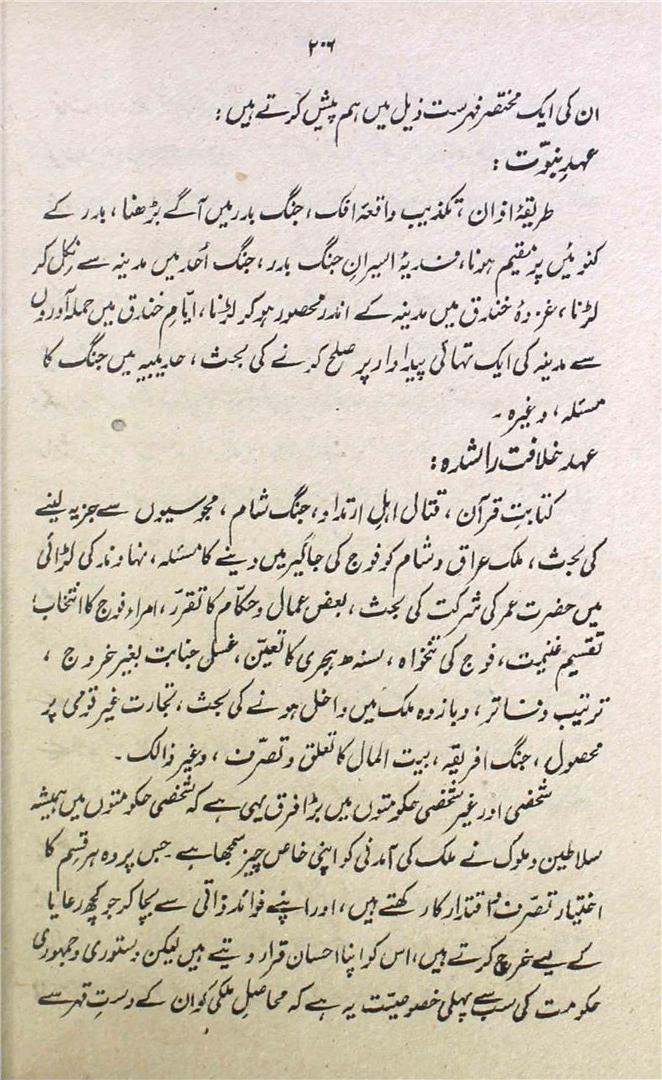 ۲۰۶
ان کی ایک مختصر فہرست ذیل میں ہم پیش کرتے ہیں:
عہدِ نبوّت:
طریقۂ اذان، تکذیب واقعۂ افک، جنگ بدر میں آگے بڑھنا، بدر کے
کنوئیں پر مقیم ہونا، فدیۂ اسیرانِ جنگ بدر، جنگ اُحد میں مدینہ سے نکل کر
لڑنا، غزوۂ خندق میں مدینہ کے اندر محصور ہو کر لڑنا، ایّامِ خندق میں حملہ آوروں
سے مدینہ کی ایک تہائی پیداوار پر صلح کرنے کی بحث، حدیبیہ میں جنگ کا
مسئلہ، وغیرہ۔
عہد خلافت راشدہ:
کتابتِ قرآن، قتال اہلِ ارتداد، جنگ شام، مجوسیوں سے جزیہ لینے
کی بحث، ملک عراق و شام کو فوج کی جاگیر میں دینے کا مسئلہ، نہاوند کی لڑائی
میں حضرت عمر کی شرکت کی بحث، بعض عمال و حکّام کا تقرّر، امراء فوج کا انتخاب،
تقسیم غنیمت، فوج کی تنخواہ، سنہ ھجری کا تعیّن، غسل جنابت بغیر خروج،
ترتیب دفاتر، وبا زدہ ملک میں داخل ہونے کی بحث، تجارت غیر قومی پر
محصول، جنگ افریقہ، بیت المال کا تعلق و تصرّف، وغیر ذالک۔
شخصی اور غیر شخصی حکومتوں میں بڑا فرق یہی ہے کہ شخصی حکومتوں میں ہمیشہ
سلاطین و ملوک نے ملک کی آمدنی کو اپنی خاص چیز سمجھا ہے جس پر وہ ہر قسم کا
اختیار تصرّف و اقتدار کار رکھتے ہیں، اور اپنے فوائد ذاتی سے بچا کر جو کچھ رعایا
کے لیے خرچ کرتے ہیں، اس کو اپنا احسان قرار دیتے ہیں لیکن دستوری و جمہوری
حکومت کی سب سے پہلی خصوصیّت یہ ہے کہ محاصلِ ملکی کو ان کے دستِ قہر سے